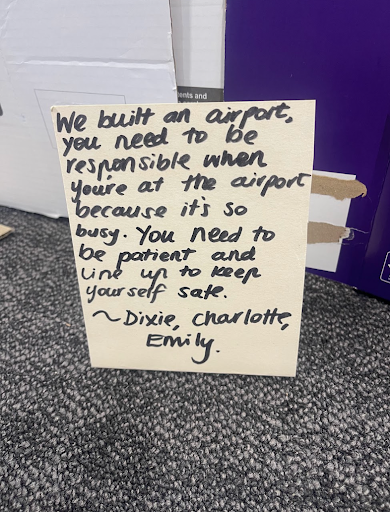 ents and
We built an airport,
you need to be
responsible when
you're at the airport
because it's so
busy. You need to
be patient and
Line up to keep
yourself safe.
~Dixie, Charlotte,
Emily.